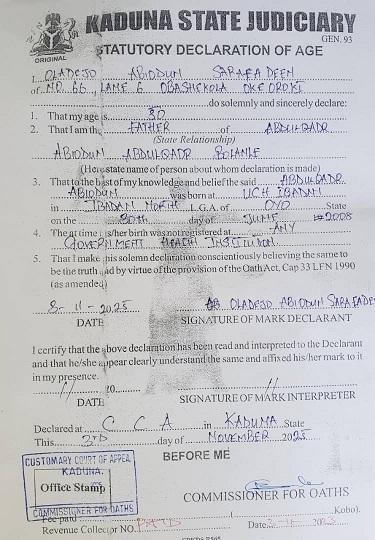 KADUNA STATE JUDICIARY
GEN. 93
ORIGINAL
STATUTORY DECLARATION OF AGE
I, OLADEJO ABIODUN SARAFADEEN
of NO. 66, LANE 6 OBASHEKOLA OKE OROKI
do solemnly and sincerely declare:
1. That my age is 30
2. That I am the FATHER of ABDULQADR
(State Relationship)
ABIODUN ABDULQADR BOLANLE
(Here state name of person about whom declaration is made)
3. That to the best of my knowledge and belief the said ABDULQADR
ABIODUN was born at UCH IBADAN
in IBADAN NORTH L.G.A. of OYO State
on the 30th day of JUNE 2008
4. The at time his/her birth was not registered at ANY
GOVERNMENT HEALTH INSTITUTION
5. That I make his solemn declaration conscientiously believing the same to
be the truth and by virtue of the provision of the Oath Act, Cap 33 LFN 1990
(as amended)
-11-2025 OLADEJO ABIODUN SARAFADE
DATE SIGNATURE OF MARK DECLARANT
I certify that the above declaration has been read and interpreted to the Declarant
and that he/she appear clearly understand the same and affixed his/her mark to it
in my presence.
// 20 //
DATE SIGNATURE OF MARK INTERPRETER
Declared at C C A in KADUNA State
This 3RD day of NOVEMBER 2025
BEFORE ME
CUSTOMARY COURT OF APPEAL
KADUNA.
Office Stamp
COMMISSIONER FOR OATHS
COMMISSIONER FOR OATHS
Fee paid ( Kobo).
Revenue Collector NO. PAID Date 3-11-2025